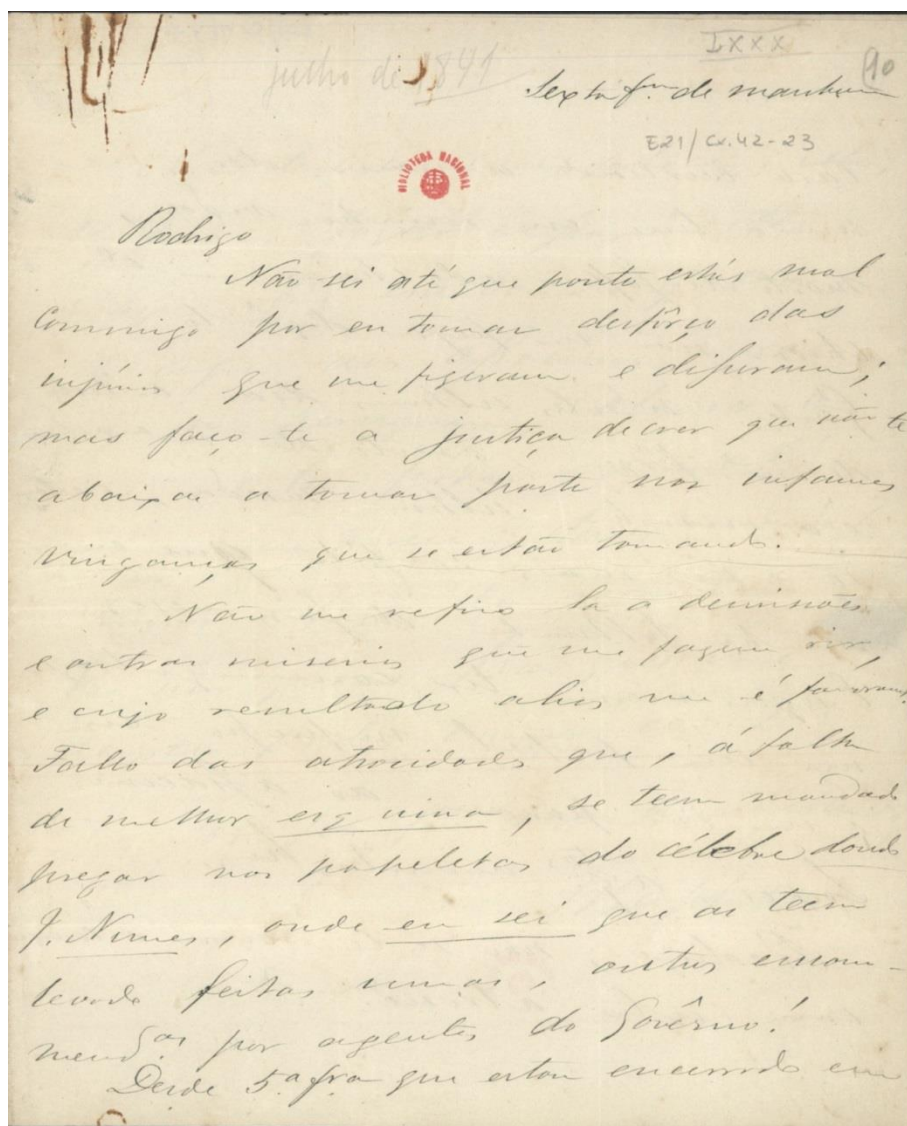 IXXX
(10
julho de 1841
Sexta fra de manhan
E21/Cx.42-23
BIBLIOTECA NACIONAL
Rodrigo
Não sei até que ponto estás mal
commigo por eu tomar desfôrço das
injúrias que me fizeram e disseram;
mas faço-te a justiça de crer que não te
abaixas a tomar parte nas infames
vinganças que se estão tomando.
Não me refiro la a demissões
e outras miserias que me fazem rir,
e cujo resultado alias me é favoravel.
Fallo das atrocidades que, á falta
de melhor esquina, se teem mandado
pregar nos papeletas do célebre doudo
J. Nunes, onde eu sei que as teem
levado feitas umas, outras encom-
mendas por agentes do Govêrno!
Desde 5ª fra que estou encerrado em